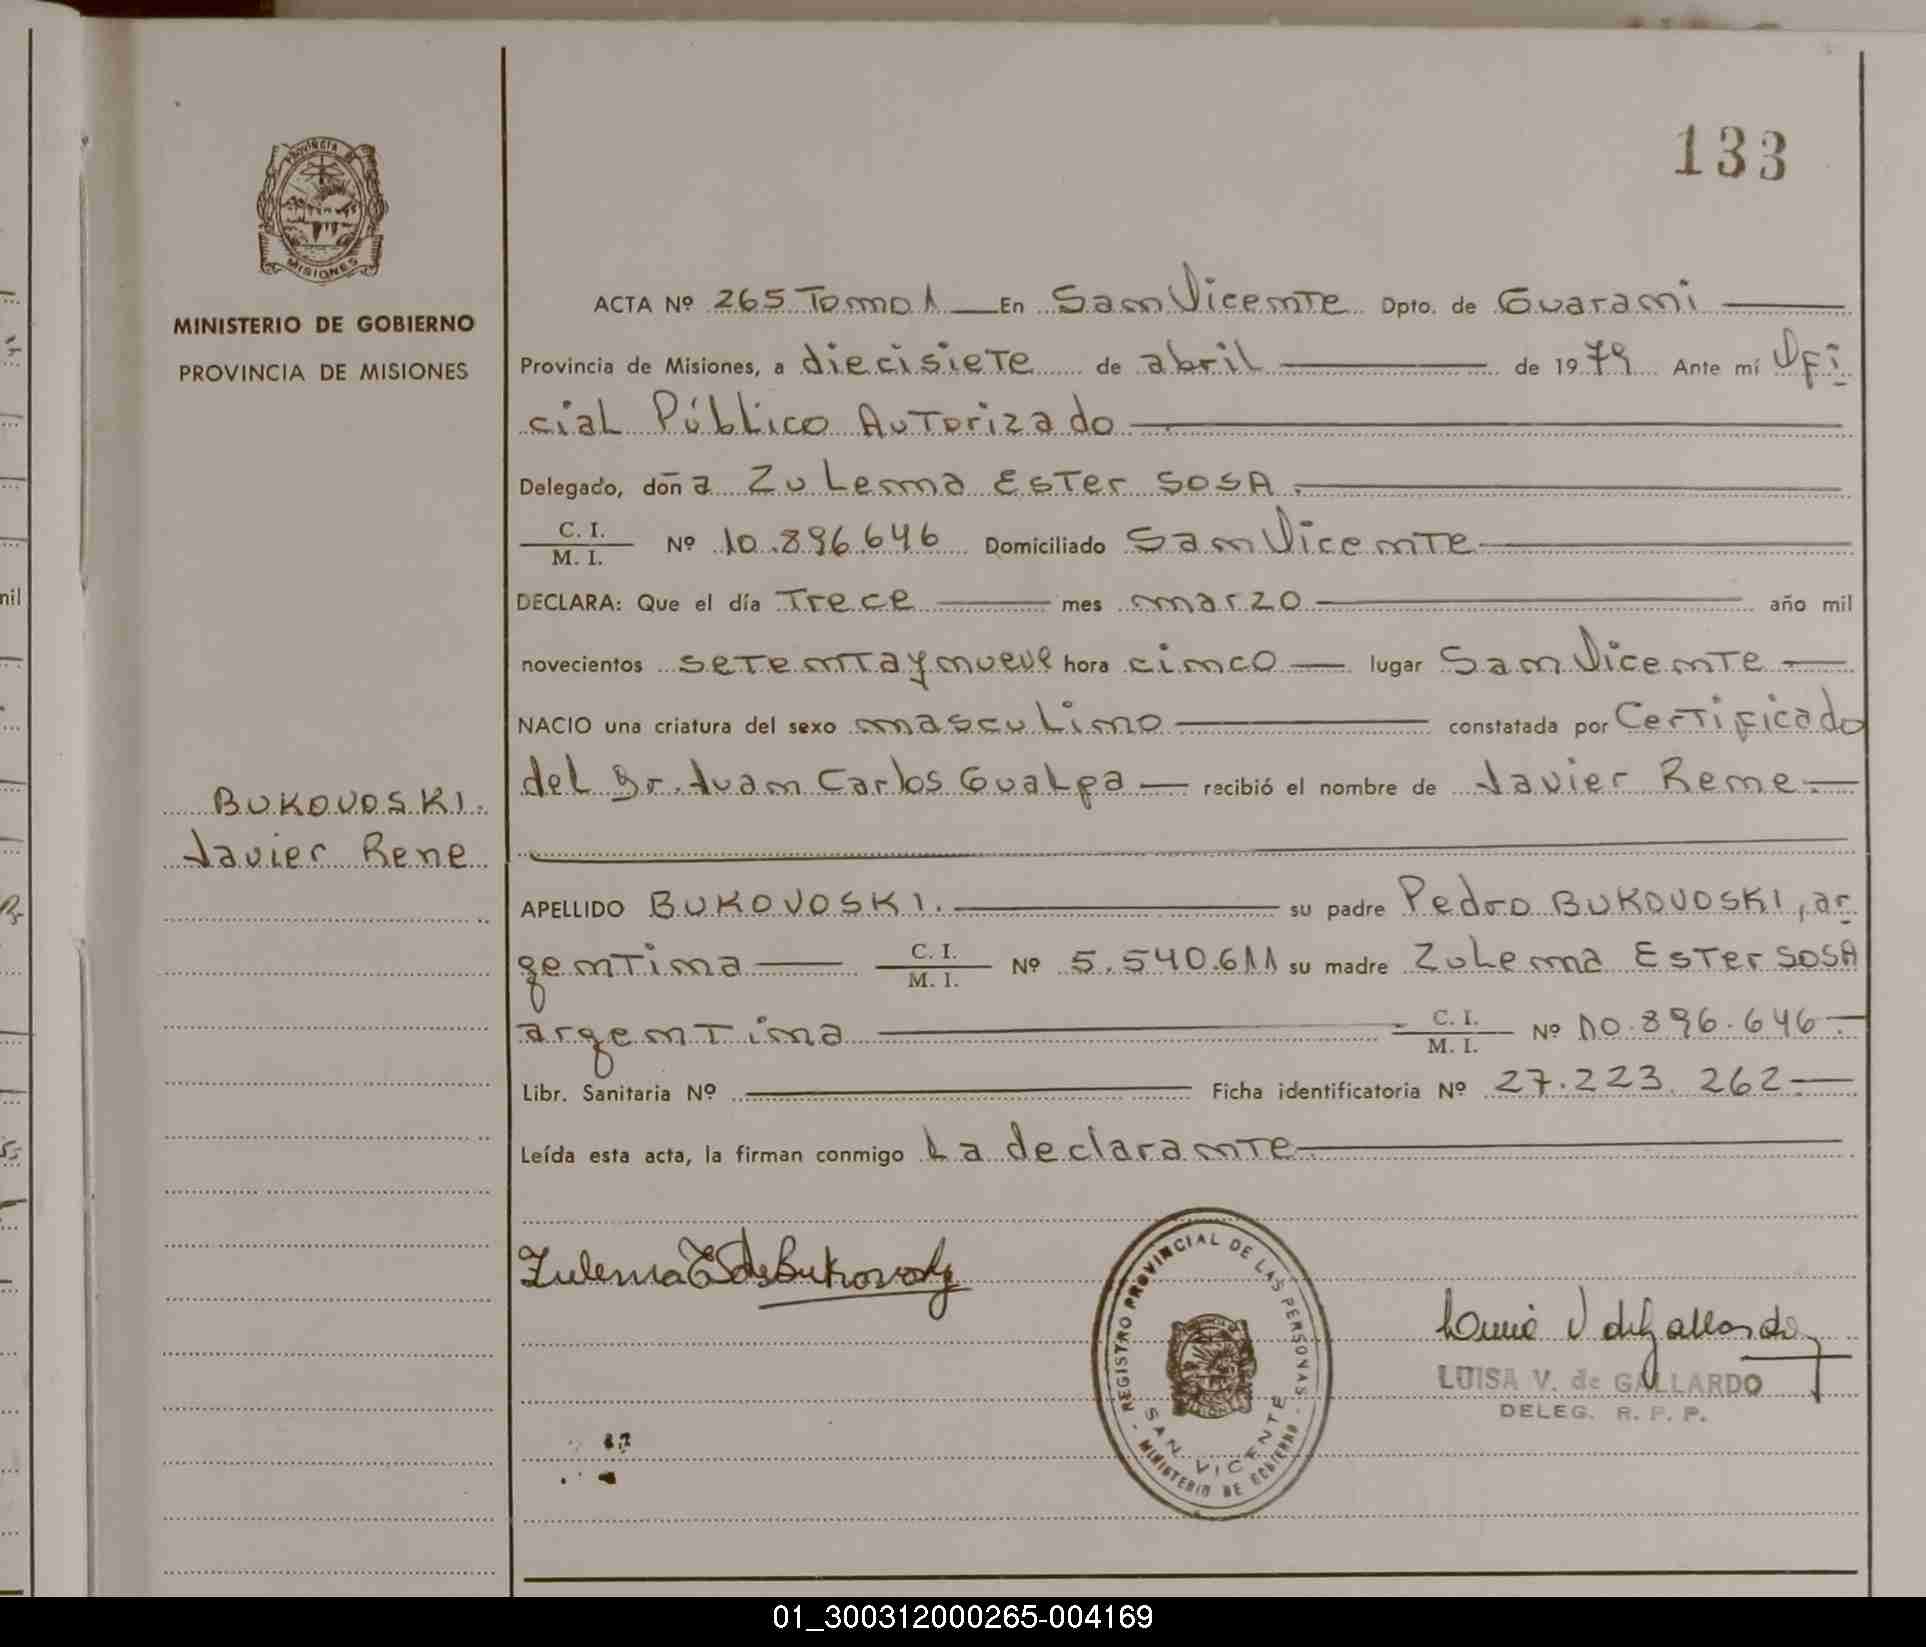 133
PROVINCIA DE
MISIONES
MINISTERIO DE GOBIERNO
PROVINCIA DE MISIONES
BUKOVOSKI.
Javier Rene
ACTA Nº 265 Tomo 1 En San Vicente Dpto. de Guarani
Provincia de Misiones, a diecisiete de abril de 1979 Ante mí Ofi
cial Público Autorizado
Delegado, doña Zulema Ester SOSA.
C. I.
M. I. Nº 10.896.646 Domiciliado San Vicente
DECLARA: Que el día Trece mes marzo año mil
novecientos setenta y nueve hora cinco lugar San Vicente
NACIO una criatura del sexo masculino constatada por Certificado
del Dr. Juan Carlos Gualpa recibió el nombre de Javier Rene
APELLIDO BUKOVOSKI. su padre Pedro BUKOVOSKI, ar
gentina C. I.
M. I. Nº 5.540.611 su madre Zulema Ester SOSA
argentina C. I.
M. I. Nº 10.896.646
Libr. Sanitaria Nº Ficha identificatoria Nº 27.223.262
Leída esta acta, la firman conmigo La declarante
Zulema E S de Bukovosky
REGISTRO PROVINCIAL DE LAS PERSONAS
SAN VICENTE
MINISTERIO DE GOBIERNO
Luisa V de Gallardo
LUISA V. de GALLARDO
DELEG. R. P. P.
nil
01_300312000265-004169